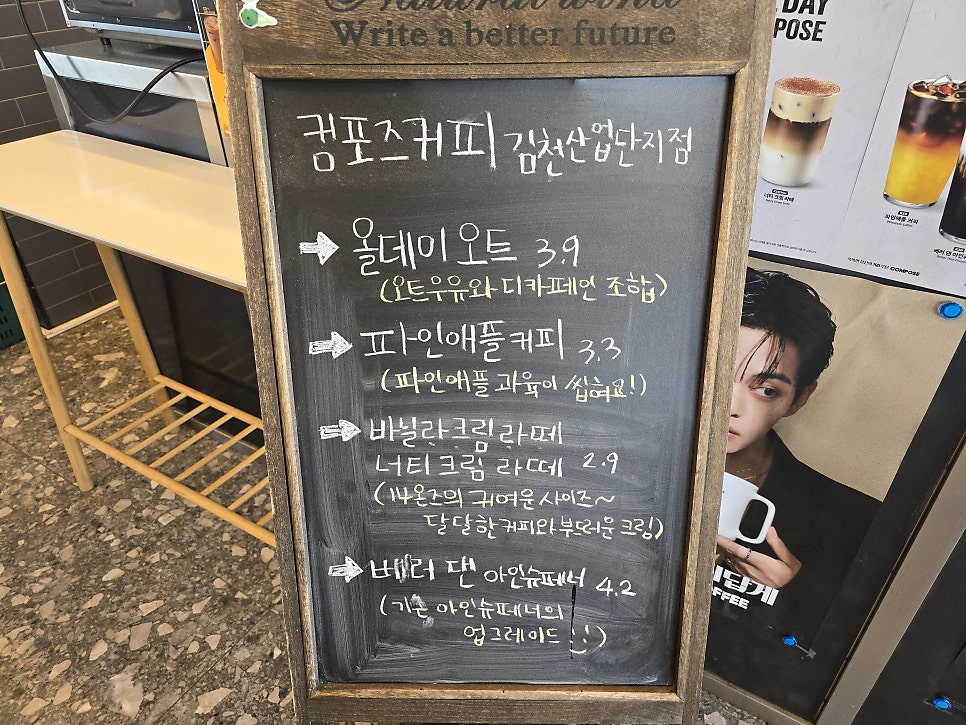 Natural wind
Write a better future
컴포즈커피 김천산업단지점
올데이 오트 3.9
(오트우유와 디카페인 조합)
파인애플커피 3.3
(파인애플 과육이 씹혀요!)
바닐라크림라떼
너티크림 라떼 2.9
(14온즈의 귀여운 사이즈~
달달한 커피와 부드러운 크림)
베러 댄 아인슈페너 4.2
(기존 아인슈페너의
업그레이드 :))
DAY
POSE
너티 크림 라떼
파인애플 커피
COMPOSE
답게
FFEE